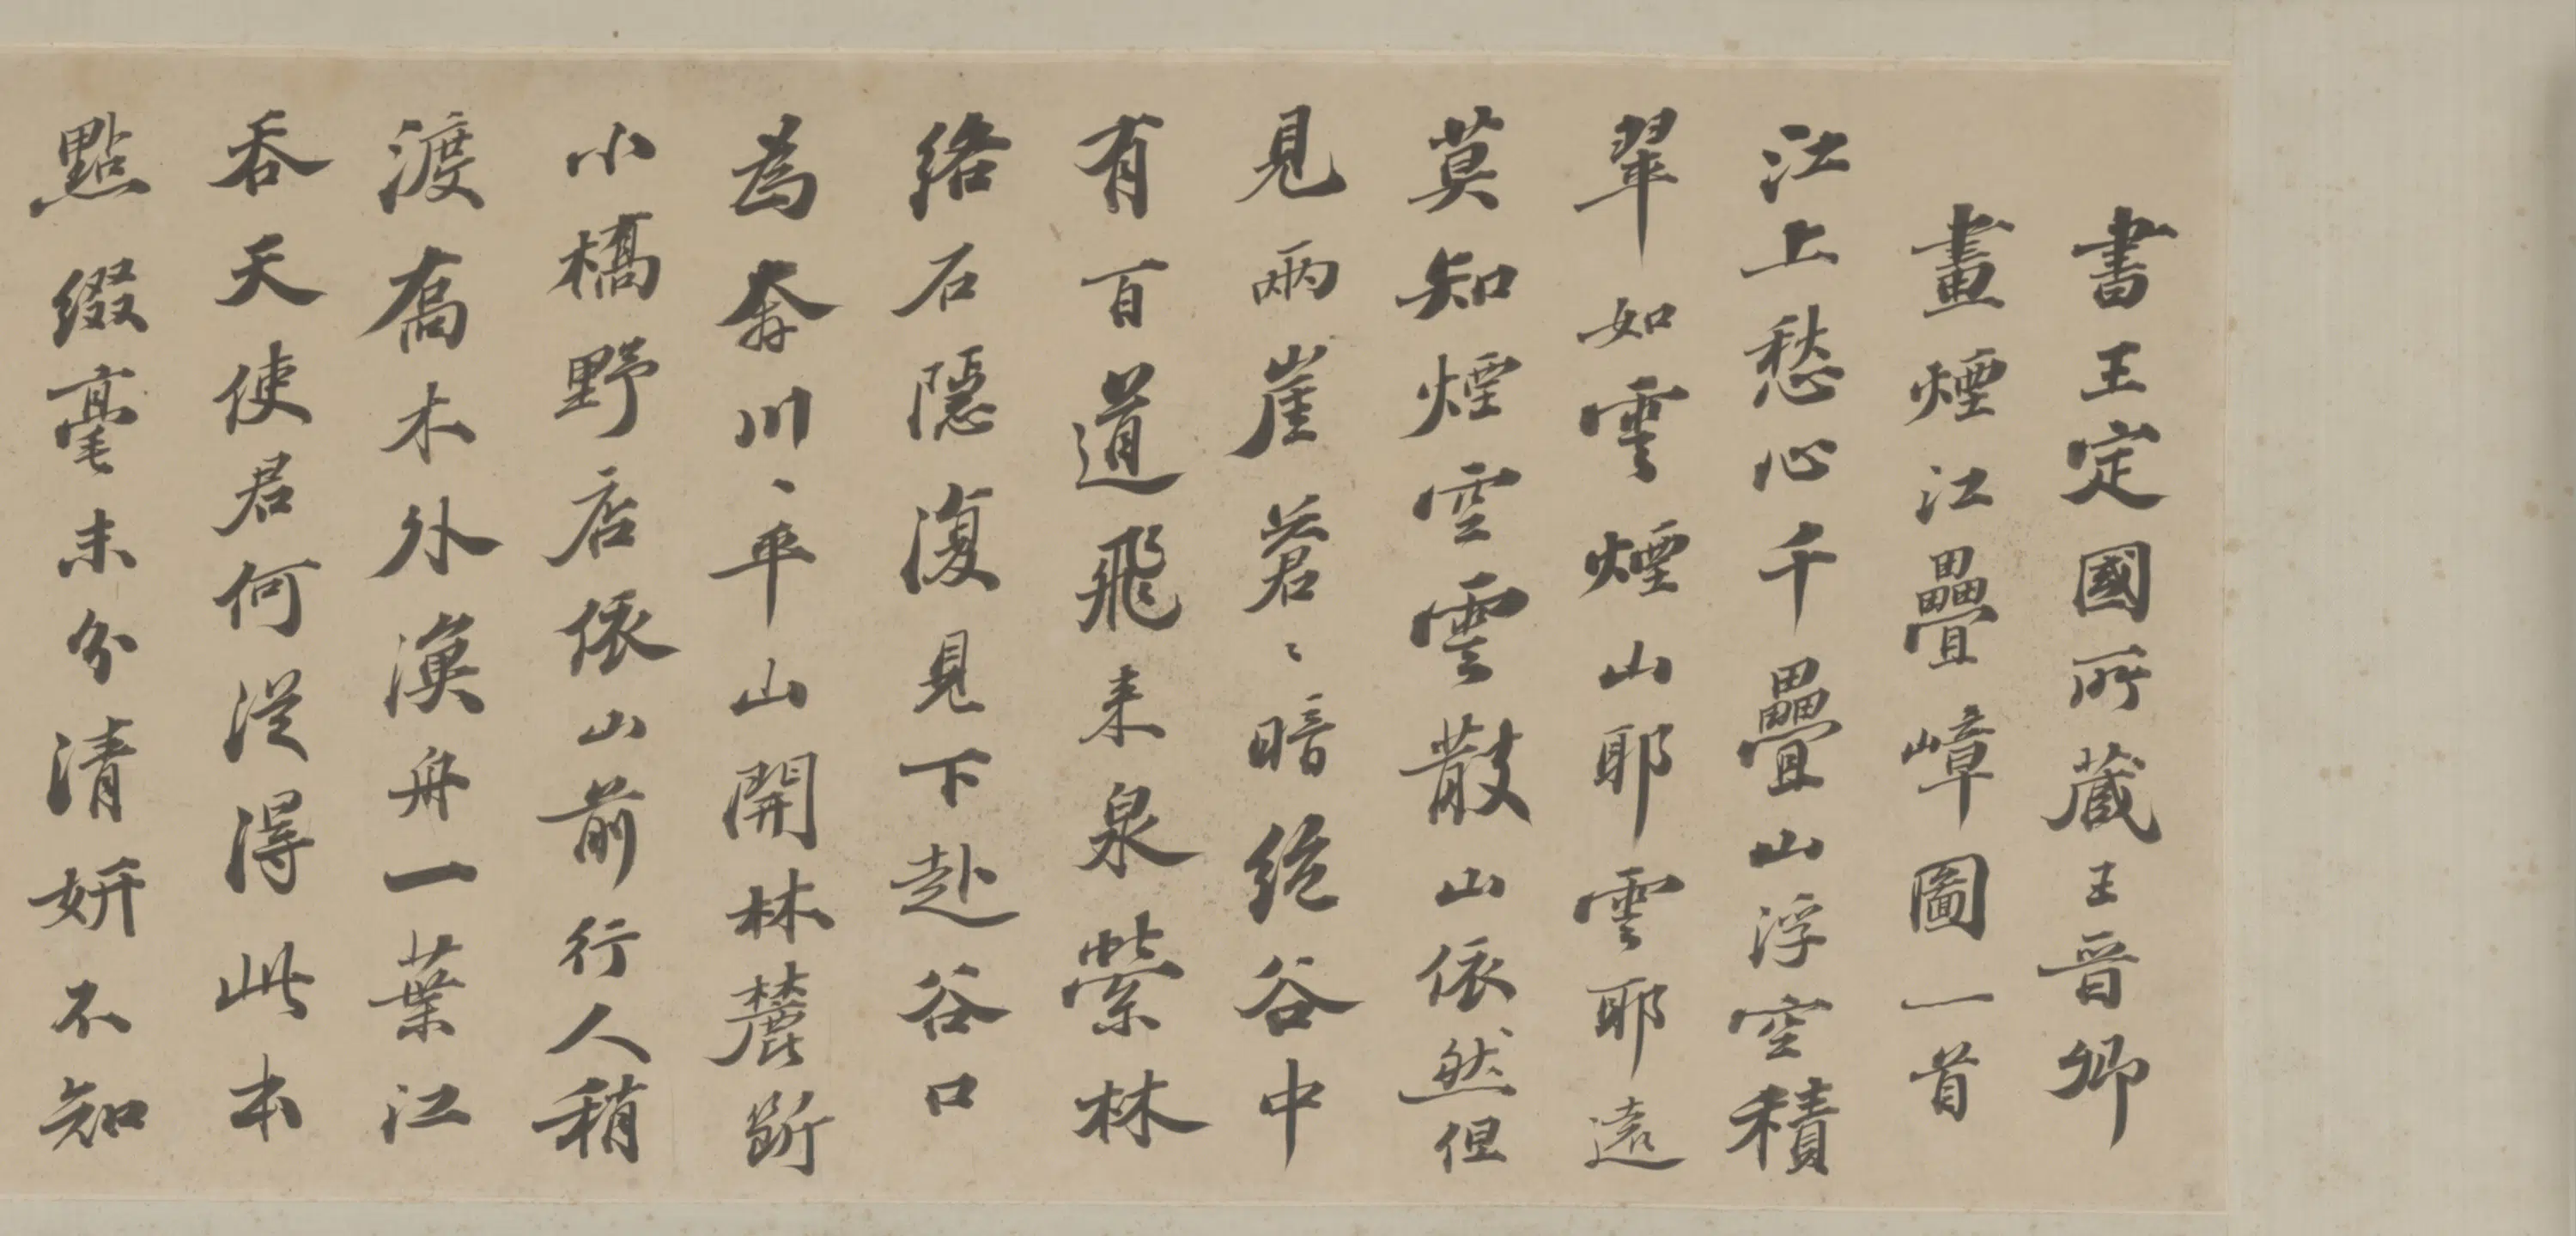 書王定國所藏王晋卿
畫煙江疊嶂圖一首
江上愁心千疊山浮空積
翠如雲煙山耶雲耶遠
莫知煙空雲散山依然但
見兩崖蒼〻暗絕谷中
有百道飛来泉縈林
絡石隱復見下赴谷口
為奔川〻平山開林麓斷
小橋野店依山前行人稍
渡喬木外漁舟一葉江
吞天使君何從得此本
點綴毫末分清妍不知